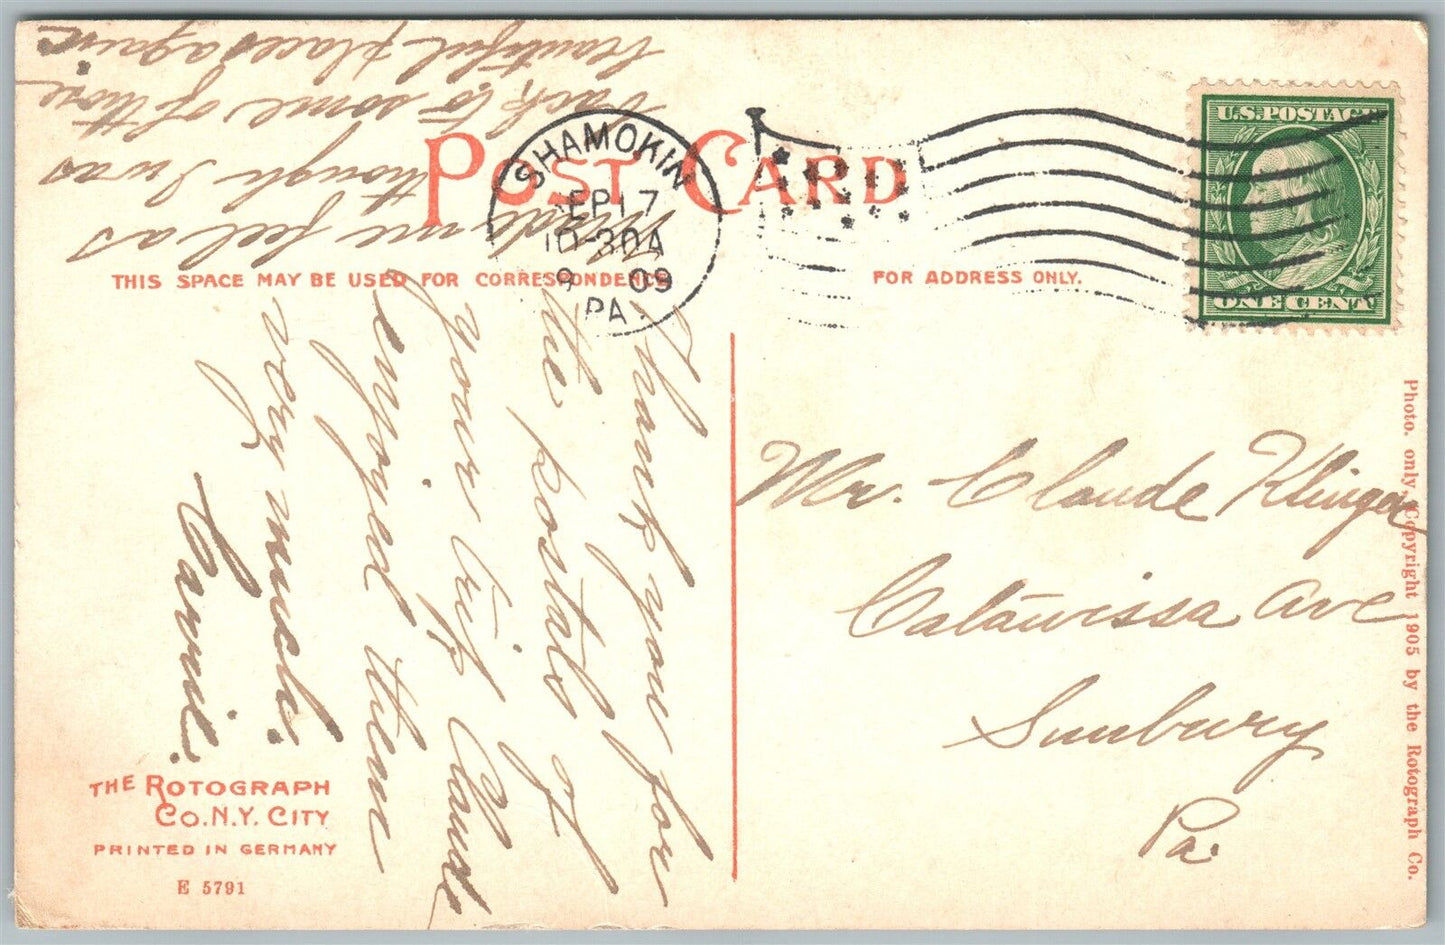 POST CARD
SHAMOKIN
SEP 17
10-30A
09
PA.
U.S. POSTAGE
ONE CENT
THIS SPACE MAY BE USED FOR CORRESPONDENCE
FOR ADDRESS ONLY.
Thank you for
the postals of
your trip Claude
enjoyed them
very much.
Carrie.
made me feel as
though I was
back to some of those
beautiful places again.
Mr. Claude Klinger
Catawissa Ave
Sunbury
Pa.
THE ROTOGRAPH
CO. N.Y. CITY
PRINTED IN GERMANY
E 5791
Photo. only Copyright 1905 by the Rotograph Co.